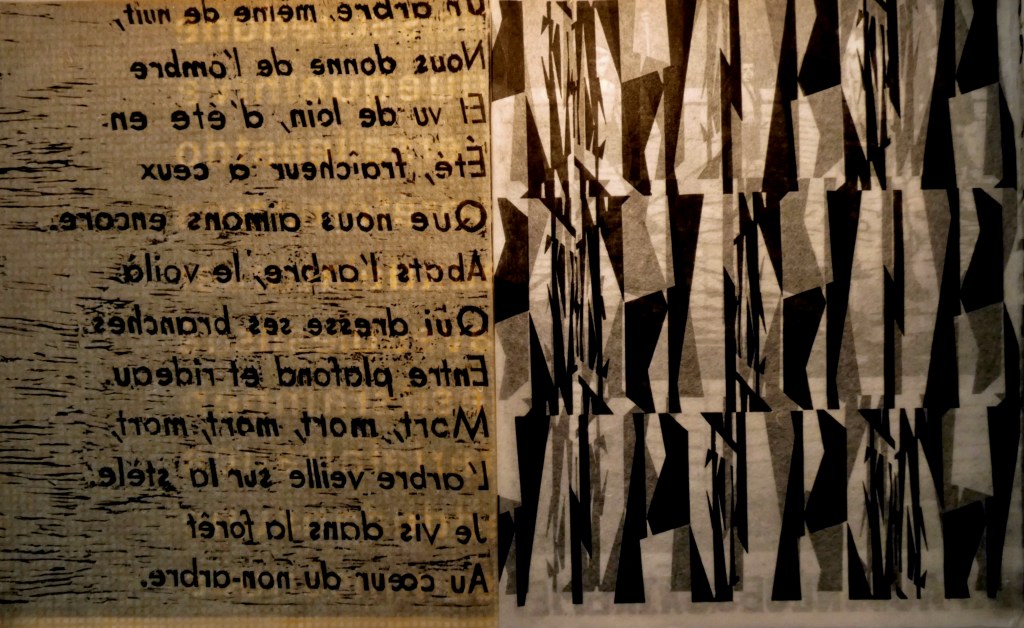 Un arbre, même de nuit,
Nous donne de l'ombre
Et vu de loin, d'été en
Été, fraîcheur à ceux
Que nous aimons encore.
Abats l'arbre, le voilà
Qui dresse ses branches
Entre plafond et rideau.
Mort, mort, mort, mort,
L'arbre veille sur la stèle.
Je vis dans la forêt
Au cœur du non-arbre.